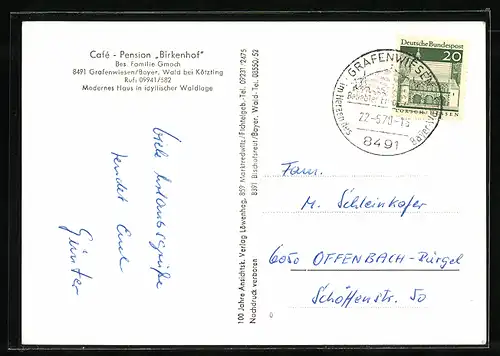 Café - Pension „Birkenhof"
Bes. Familie Gmach
8491 Grafenwiesen/Bayer. Wald bei Kötzting
Ruf: 09941/582
Modernes Haus in idyllischer Waldlage
viele Urlaubsgrüße
sendet Euch
Günter
100 Jahre Ansichtsk. Verlag Löwenhag, 859 Marktredwitz/Fichtelgeb.-Tel. 09231/2475
Nachdruck verboten 8391 Bischofsreut/Bayer. Wald-Tel. 08550/52
GRAFENWIESEN
22.-5.70.-15
8491
Deutsche Bundespost
20
LORSCH/HESSEN
Fam.
M. Schleinkofer
6050 OFFENBACH-Bürgel
Schöffenstr. 50